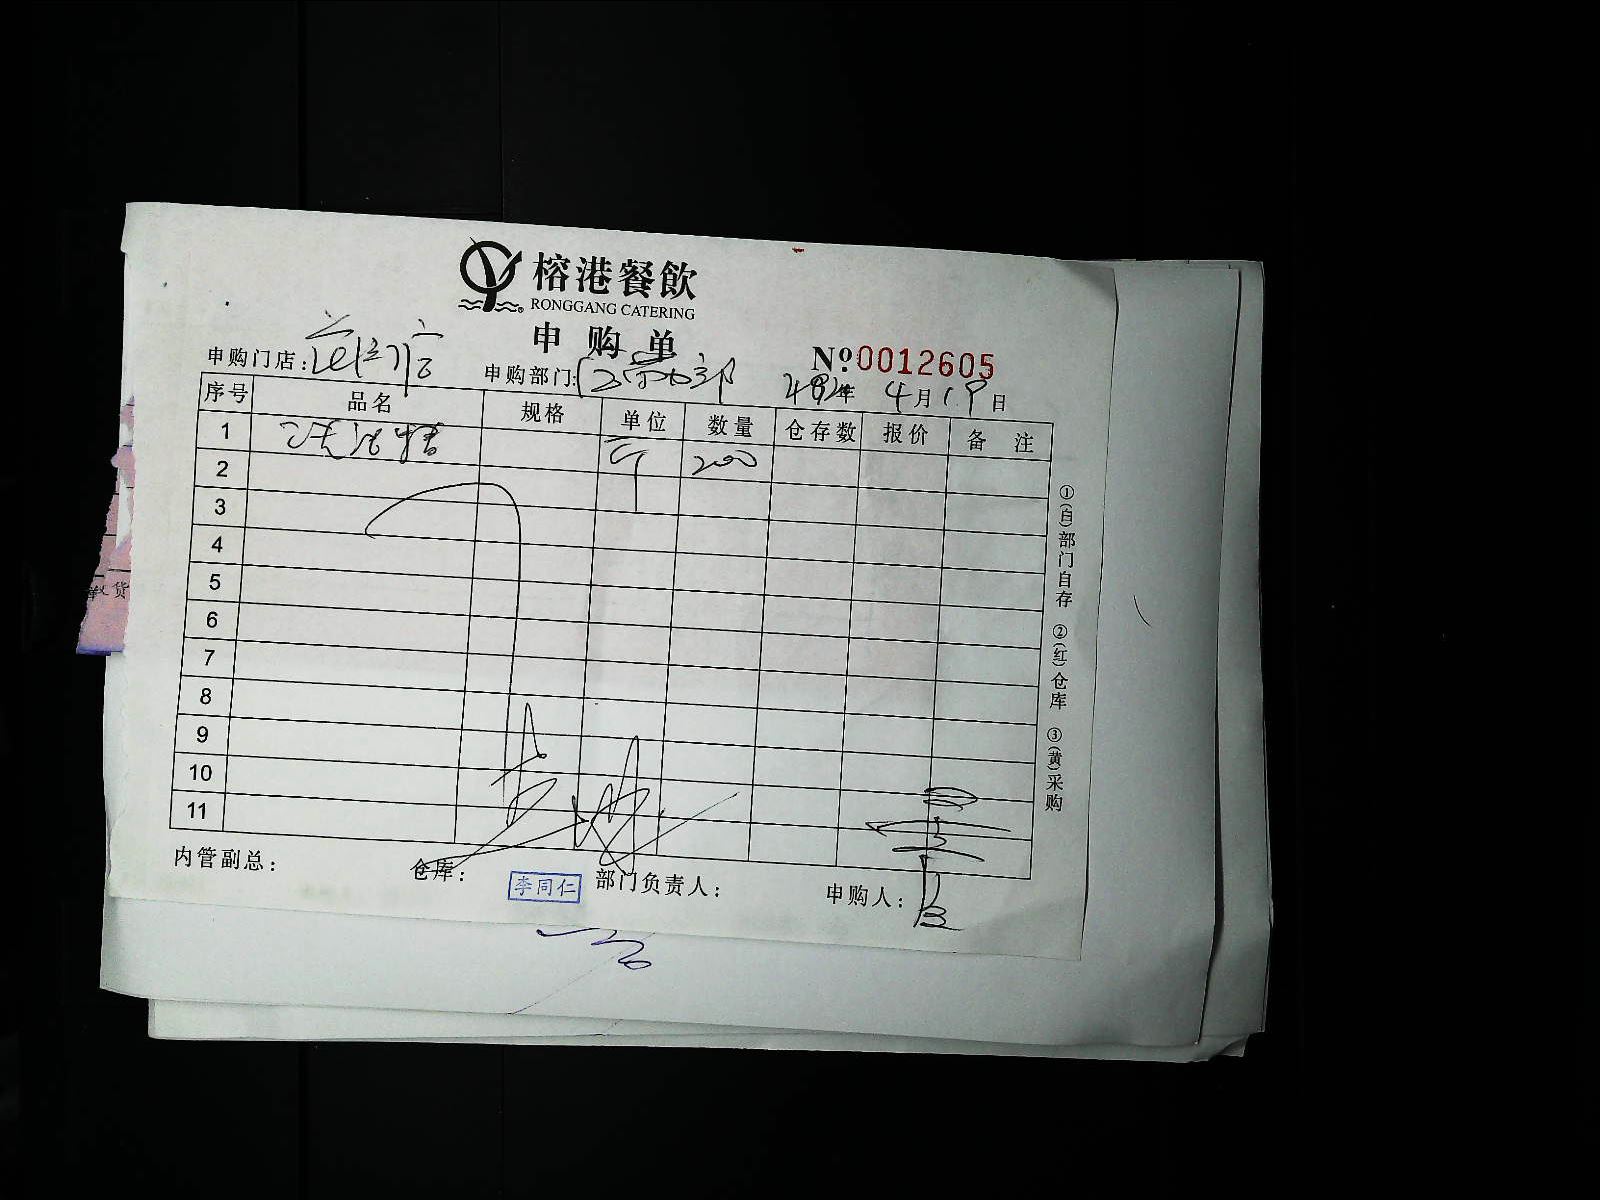 榕港餐飲
RONGGANG CATERING
申购单
申购门店: 申购部门: № 0012605
4月19日
序号 品名 规格 单位 数量 仓存数 报价 备注
1 洗洁精 斤 200
2
3
4
5
6
7
8
9
10
11
内管副总: 仓库: 李同仁 部门负责人: 申购人:
①(白)部门自存 ②(红)仓库 ③(黄)采购
收货